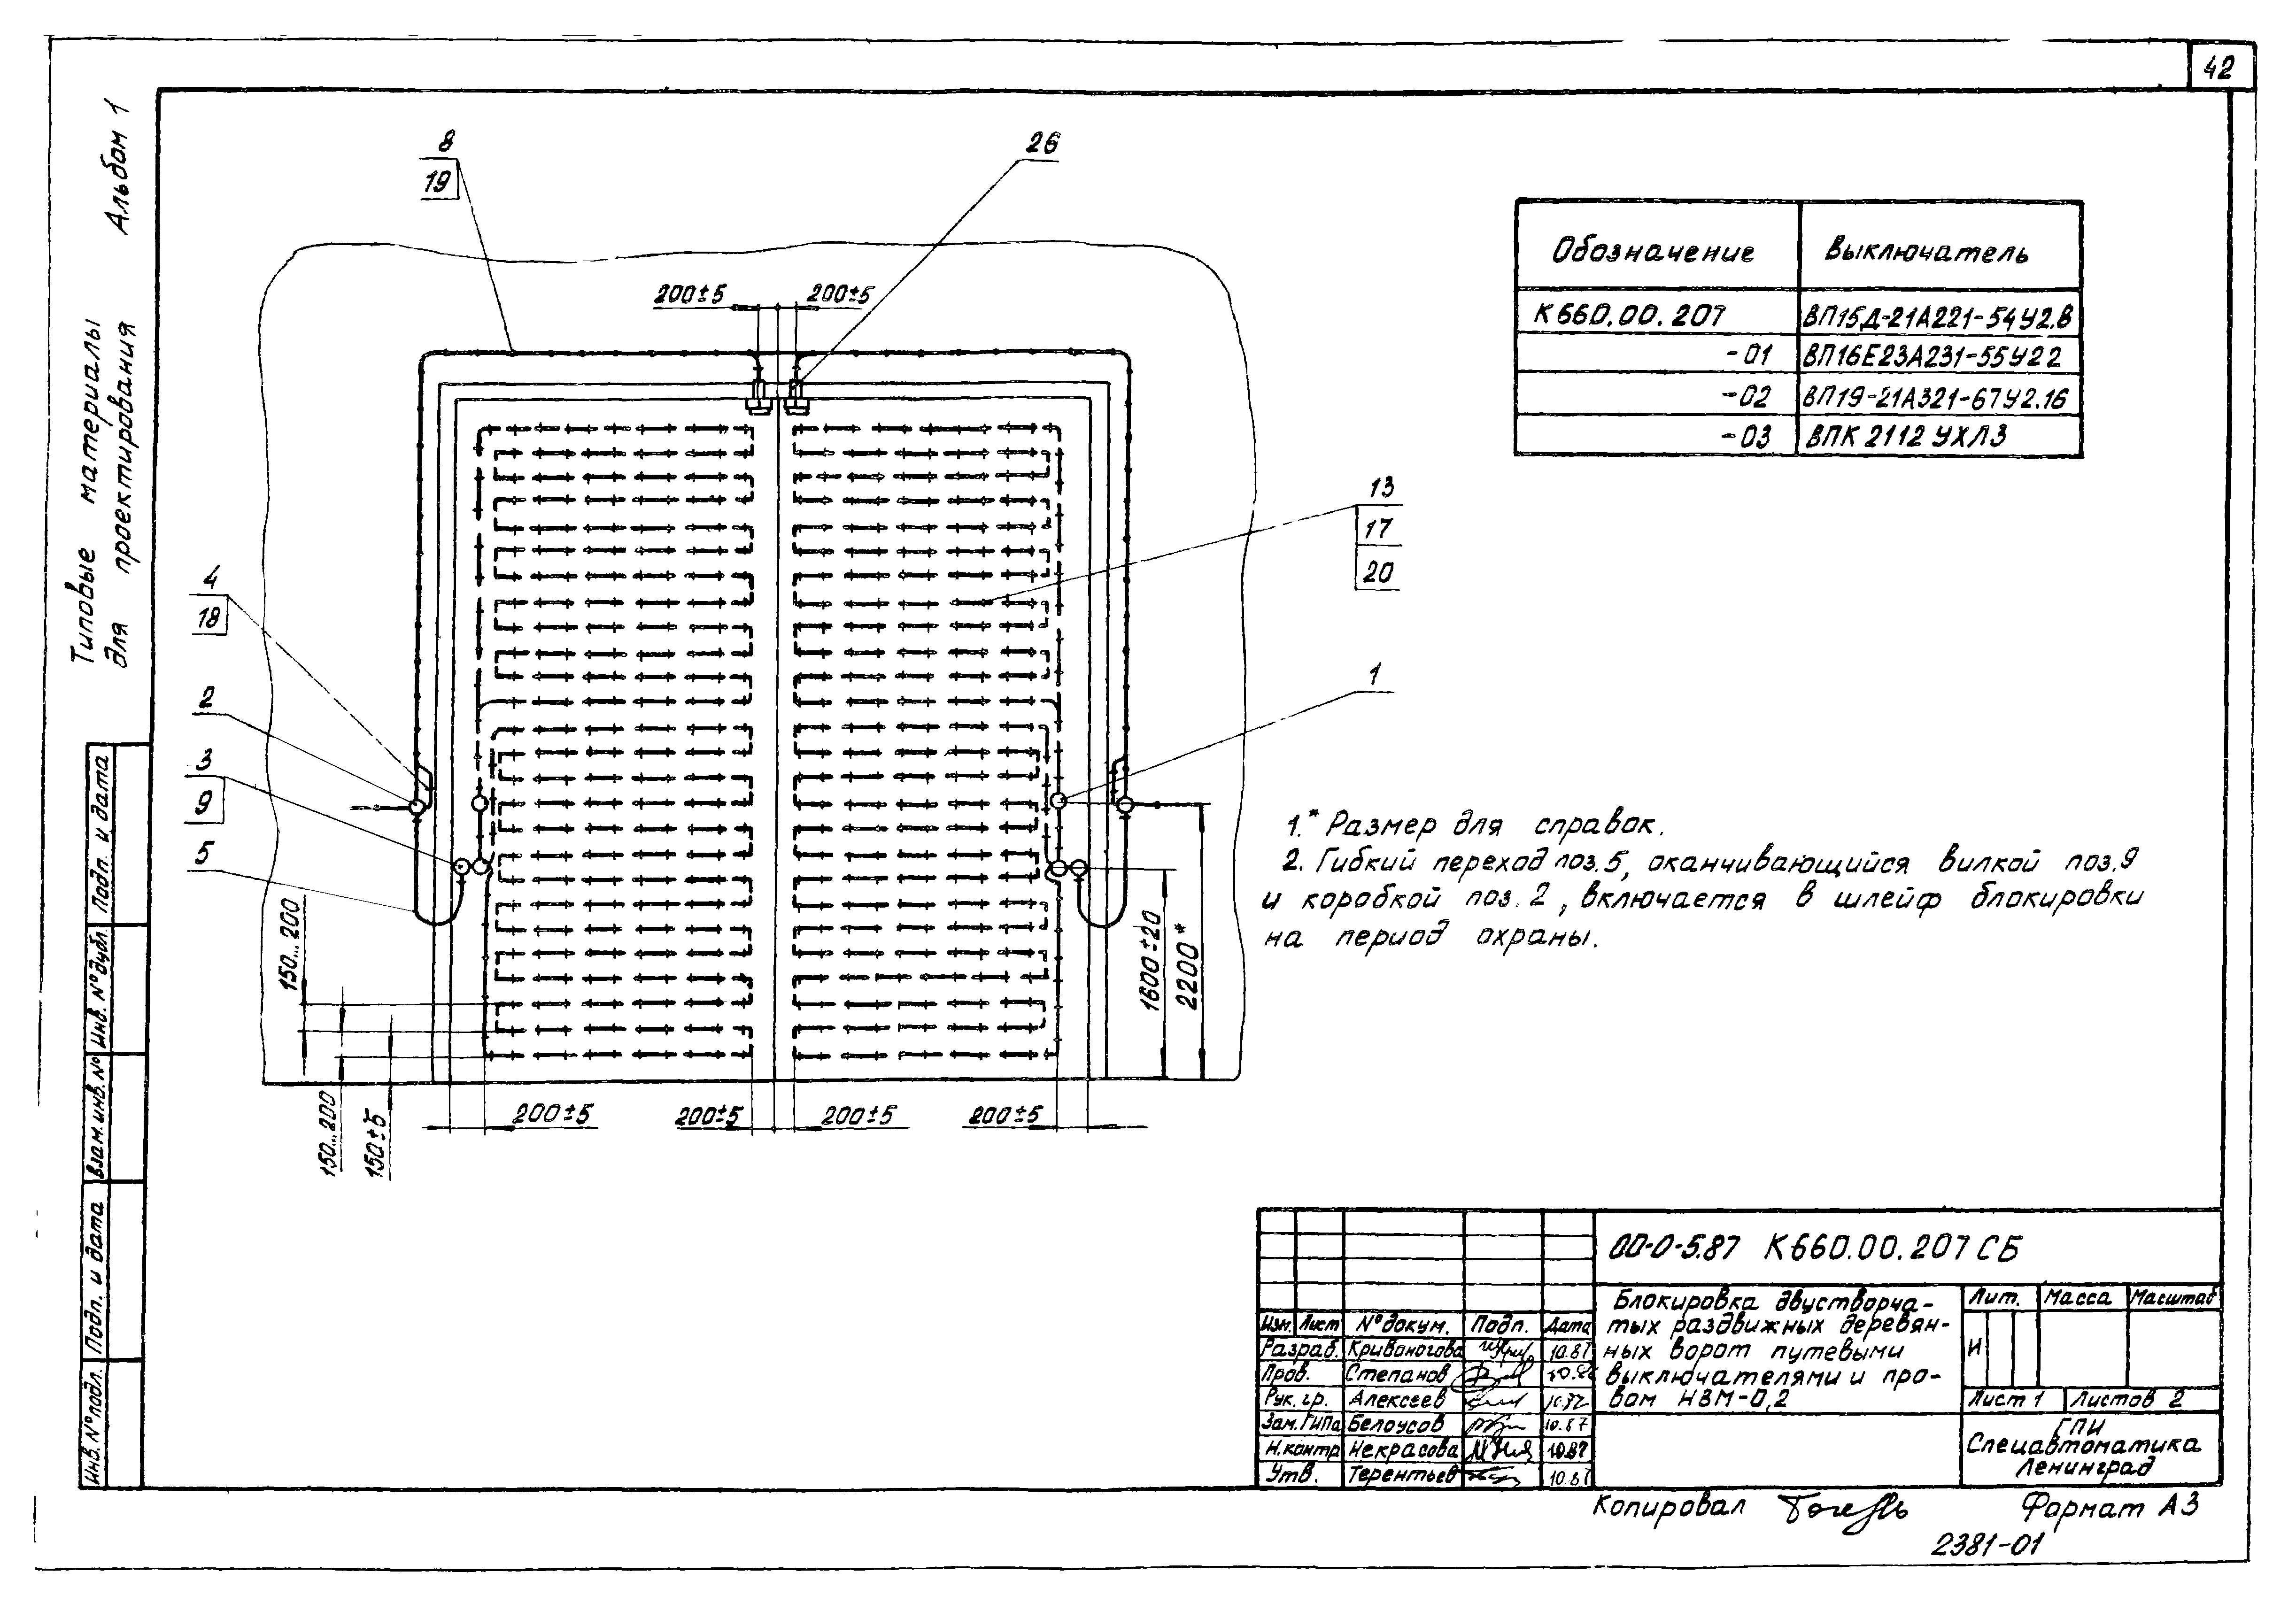 42
Типовые материалы Альбом 1
для проектирования
8
19
26
200±5 200±5
4
18
2
3
9
5
13
17
20
1
150...200
150...200
150±5
200±5 200±5 200±5 200±5
1600±20
2200*
Обозначение Выключатель
К660.00.207 ВП15Д-21А221-54У2.8
-01 ВП16Е23А231-55У22
-02 ВП19-21А321-67У2.16
-03 ВПК 2112 УХЛ3
1.* Размер для справок.
2. Гибкий переход поз.5, оканчивающийся вилкой поз.9
и коробкой поз.2, включается в шлейф блокировки
на период охраны.
Инв. № подл. Подп. и дата Взам.инв.№ Инв. № дубл. Подп. и дата
00-0-5.87 К660.00.207 СБ
Изм. Лист № докум. Подп. Дата
Разраб. Кривоногова 10.87
Пров. Степанов
Рук. гр. Алексеев
Зам.ГИПа Белоусов 10.87
Н.контр Некрасова 10.87
Утв. Терентьев 10.87
Блокировка двустворча-
тых раздвижных деревян-
ных ворот путевыми
выключателями и про-
вом НВМ-0,2
Лит. Масса Масштаб
И
Лист 1 Листов 2
ГПИ
Спецавтоматика
Ленинград
Копировал Формат А3
2381-01